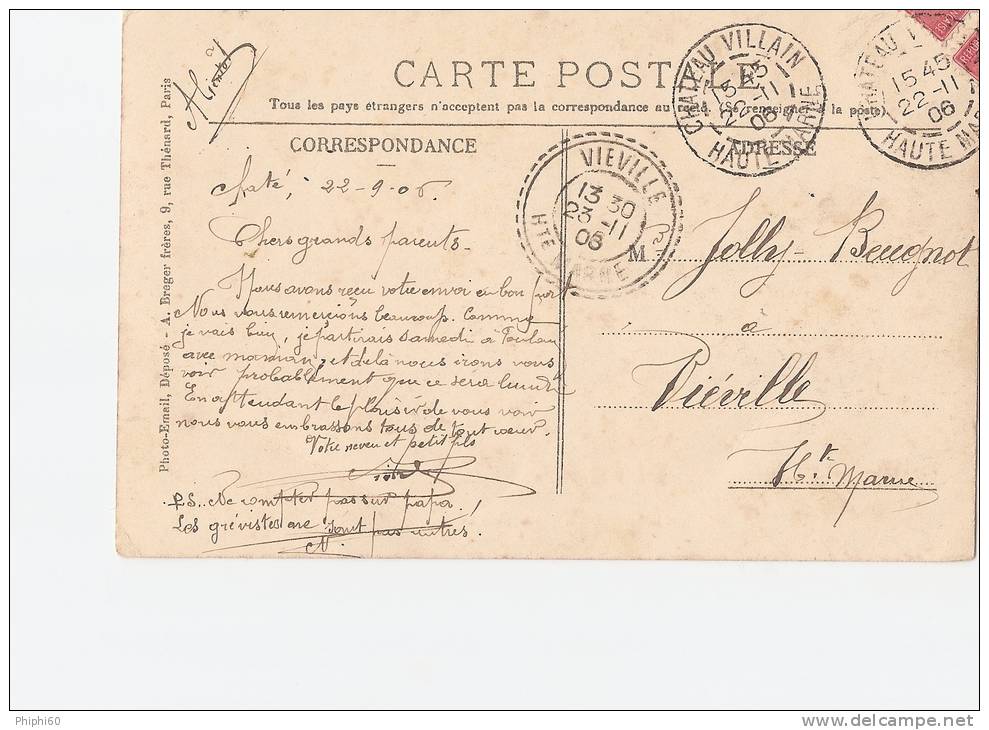 à
CARTE POSTALE
Tous les pays étrangers n'acceptent pas la correspondance au recto. (Se renseigner à la poste)
CHATEAU VILLAIN
15 45
22-11
06
HAUTE MARNE
CHATEAU V
15 45
22-11
06
HAUTE MAR
CORRESPONDANCE
ADRESSE
VIEVILLE
13 30
23-11
06
HTE MARNE
22-9-06
Chers grands parents-
Nous avons reçu votre envoi en bon
Nous vous remercions beaucoup. Comme
je vais bien, je partirais samedi à Foulain
avec maman, et de là nous irons vous
voir probablement que ce sera lundi
En attendant le plaisir de vous voir
nous vous embrassons tous de tout cœur.
Votre neveu et petit fils
P.S. Ne compter pas sur papa!
Les grévistes ne sont pas rentrés!
N.
M Jolly-Beugnot
à
Viéville
Hte Marne
Photo-Email, Déposé - A. Breger frères, 9, rue Thénard, Paris
Phiphi60
delcampe.net